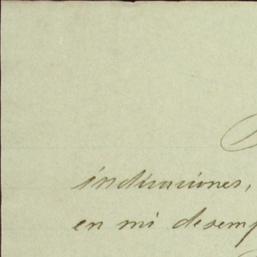 indicaciones,
en mi desemp